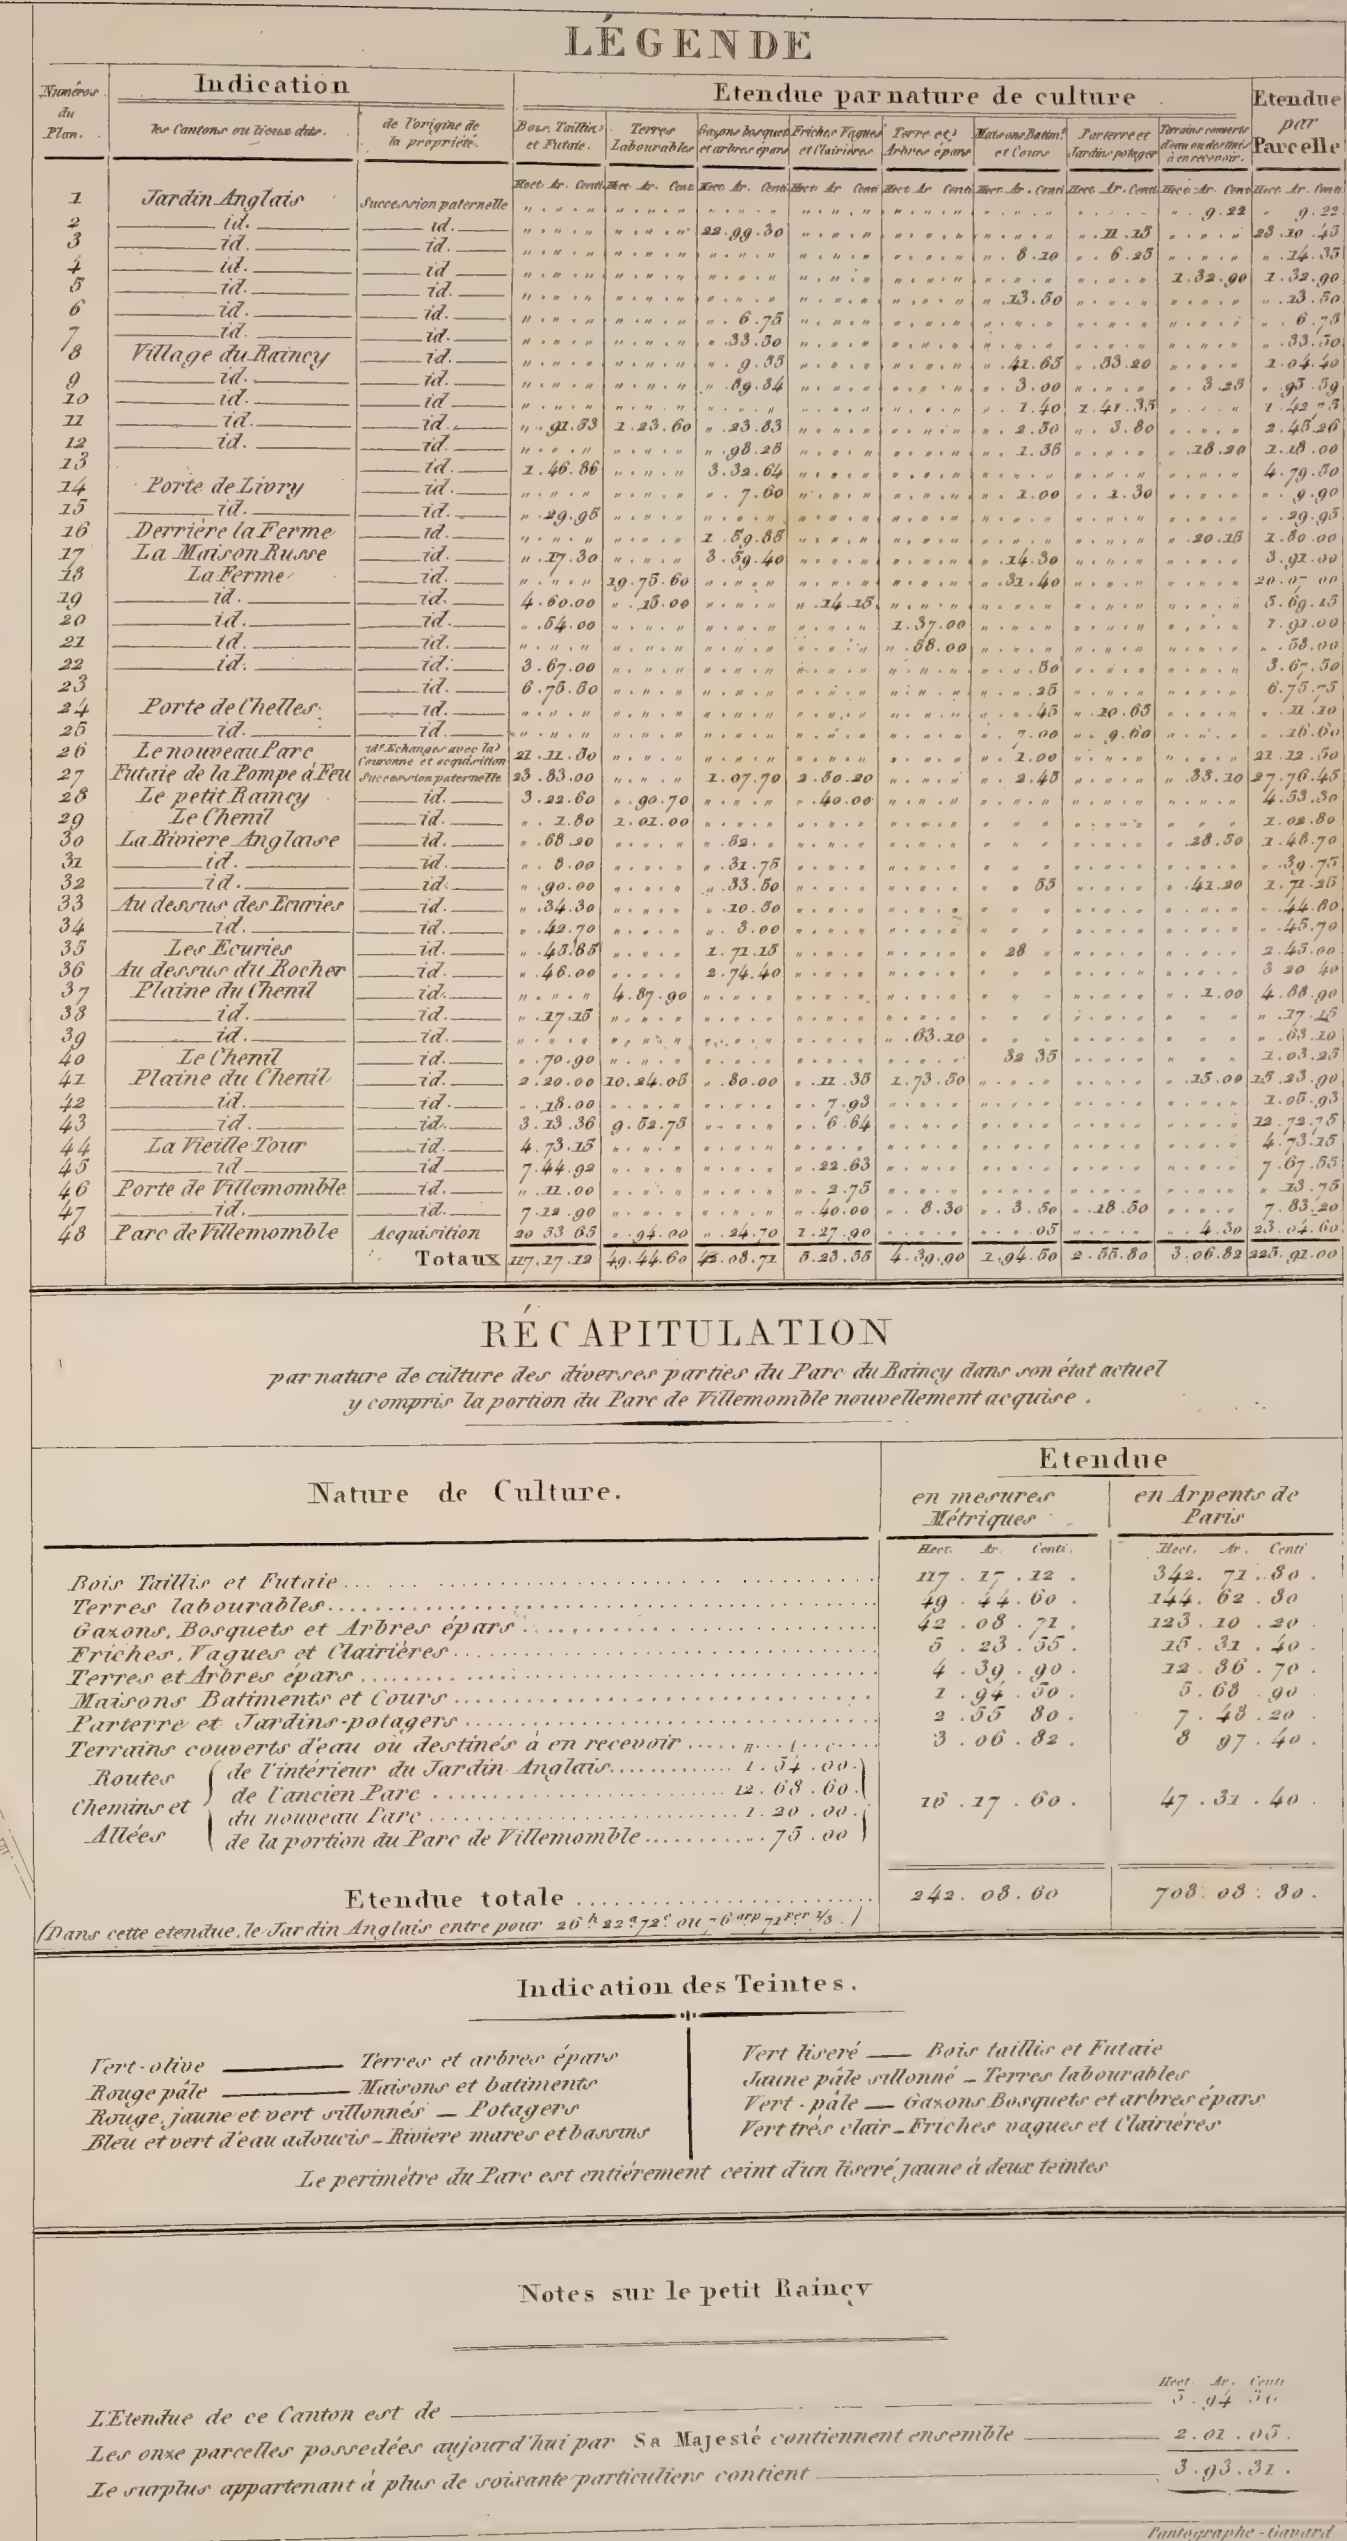 LÉGENDE
Numéros du Plan. Indication Etendue par nature de culture Etendue par Parcelle
les Cantons ou lieux dits. de l'origine de la propriété. Bois, Taillis et Futaie. Terres Labourables Gazons bosquets et arbres épars Friches Vagues et Clairières Terre et Arbres épars Maisons Batim.s et Cours Parterre et Jardins potager Terrains couverts d'eau ou destinés à en recevoir.
Hect. Ar. Centi Hect. Ar. Cent Hect. Ar. Centi Hect. Ar Centi Hect Ar Centi Hect. Ar. Centi Hect. Ar. Centi Hect. Ar. Cent Hect. Ar. Centi
1 Jardin Anglais Succession paternelle 9.22 9.22
2 id. id. 22.99.30 11.15 23.10.45
3 id. id. 8.10 6.25 14.35
4 id. id 1.32.90 1.32.90
5 id. id. 13.50 13.50
6 id. id. 6.75 6.75
7 id. id. 33.50 33.50
8 Village du Raincy id. 9.55 41.65 53.20 1.04.40
9 id. id. 89.84 3.00 3.25 95.59
10 id. id. 1.40 1.41.35 1.42.75
11 id. id. 91.53 1.23.60 23.83 2.50 3.80 2.45.26
12 id. id. 98.25 1.35 18.20 1.18.00
13 id. 1.46.86 3.32.64 4.79.50
14 Porte de Livry id. 7.60 1.00 1.30 9.90
15 id. id. 29.95 29.95
16 Derrière la Ferme id. 1.59.85 20.15 1.80.00
17 La Maison Russe id. 17.30 3.59.40 14.30 3.91.00
18 La Ferme id. 19.75.60 31.40 20.07 00
19 id. id. 4.60.00 15.00 14.15 5.69.15
20 id. id. 54.00 1.37.00 1.91.00
21 id. id. 58.00 58.00
22 id. id. 3.67.00 50 3.67.50
23 id. 6.75.50 25 6.75.75
24 Porte de Chelles id. 45 10.65 11.10
25 id. id. 7.00 9.60 16.60
26 Le nouveau Parc id. Echanges avec la Couronne et acquisition 21.11.50 1.00 21.12.50
27 Futaie de la Pompe à Feu Succession paternelle 23.83.00 1.07.70 2.50.20 2.45 33.10 27.76.45
28 Le petit Raincy id. 3.22.60 90.70 40.00 4.53.30
29 Le Chenil id. 1.80 1.01.00 1.02.80
30 La Riviere Anglaise id. 68.20 52. 28.50 1.48.70
31 id. id. 8.00 31.75 39.75
32 id. id. 90.00 33.50 55 41.20 1.71.25
33 Au dessus des Ecuries id. 34.30 10.50 44.80
34 id. id. 42.70 3.00 45.70
35 Les Ecuries id. 45.85 1.71.15 28 2.45.00
36 Au dessus du Rocher id. 46.00 2.74.40 3 20 40
37 Plaine du Chenil id. 4.87.90 1.00 4.88.90
38 id. id. 17.15 17.15
39 id. id. 63.10 63.10
40 Le Chenil id. 70.90 32 35 1.03.25
41 Plaine du Chenil id. 2.20.00 10.24.05 80.00 11.35 1.73.50 15.00 15.23.90
42 id. id. 18.00 7.93 1.05.93
43 id. id. 3.13.36 9.52.75 6.64 12.72.75
44 La Vieille Tour id. 4.73.15 4.73.15
45 id id 7.44.92 22.63 7.67.55
46 Porte de Villemomble id. 11.00 2.75 13.75
47 id. id. 7.12.90 40.00 8.30 3.50 18.50 7.83.20
48 Parc de Villemomble Acquisition 20 53 65 94.00 24.70 1.27.90 05 4.30 23.04.60
Totaux 117.17.12 49.44.60 42.08.71 5.23.55 4.39.90 1.94.50 2.55.80 3.06.82 225.91.00
RÉCAPITULATION
par nature de culture des diverses parties du Parc du Raincy dans son état actuel
y compris la portion du Parc de Villemomble nouvellement acquise.
Nature de Culture. Etendue
en mesures Métriques en Arpents de Paris
Hect. Ar. Centi. Hect. Ar. Centi
Bois Taillis et Futaie 117.17.12. 342. 71.80.
Terres labourables 49.44.60. 144. 62.80
Gazons, Bosquets et Arbres épars 42.08.71. 123.10.20.
Friches, Vagues et Clairières 5.23.55. 15.31.40.
Terres et Arbres épars 4.39.90. 12.86.70.
Maisons Batiments et Cours 1.94.50. 5.68.90
Parterre et Jardins-potagers 2.55 80. 7.48.20.
Terrains couverts d'eau où destinés à en recevoir 3.06.82. 8 97.40.
Routes Chemins et Allées
de l'intérieur du Jardin Anglais 1.54.00.
de l'ancien Parc 12.68.60.
du nouveau Parc 1.20.00.
de la portion du Parc de Villemomble 75.00
16.17.60. 47.31.40.
Etendue totale 242.08.60 708.08.80.
(Dans cette etendue, le Jardin Anglais entre pour 26h 22a 72c ou 76 arp 71 per 1/3.)
Indication des Teintes.
Vert-olive — Terres et arbres épars
Rouge pâle — Maisons et batiments
Rouge, jaune et vert sillonnés — Potagers
Bleu et vert d'eau adoucis — Riviere mares et bassins
Vert liseré — Bois taillis et Futaie
Jaune pâle sillonné — Terres labourables
Vert-pâle — Gazons Bosquets et arbres épars
Vert trés clair — Friches vagues et Clairiéres
Le perimétre du Parc est entiérement ceint d'un liseré jaune à deux teintes
Notes sur le petit Raincy
Hect. Ar. Centi
L'Etendue de ce Canton est de 5.94 36
Les onze parcelles possedées aujourd'hui par Sa Majesté contiennent ensemble 2.01.05.
Le surplus appartenant à plus de soixante particuliers contient 3.93.31.
Pantographe-Gavard